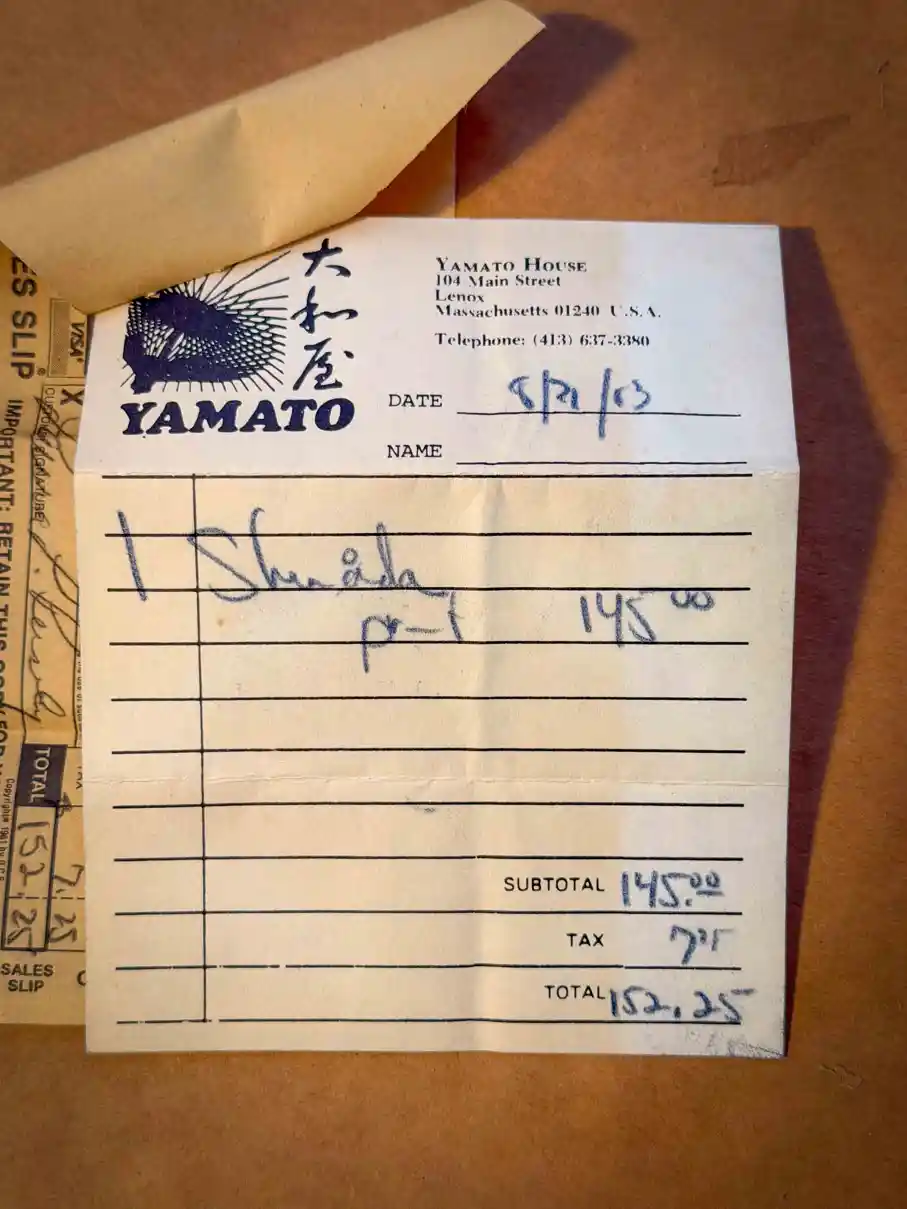 大和屋
YAMATO
YAMATO HOUSE
104 Main Street
Lenox
Massachusetts 01240 U.S.A.
Telephone: (413) 637-3380
DATE
NAME
1
145 00
SUBTOTAL 145.00
TAX
TOTAL 152.25
ES SLIP
VISA
X
CUSTOMER SIGNATURE
IMPORTANT: RETAIN THIS COPY FOR
TOTAL 152.25
7.25
SALES
SLIP